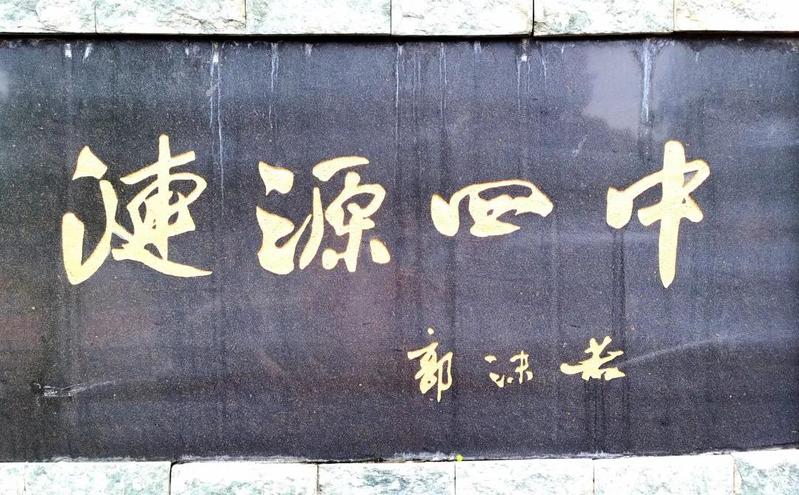 漣源四中
郭沫若